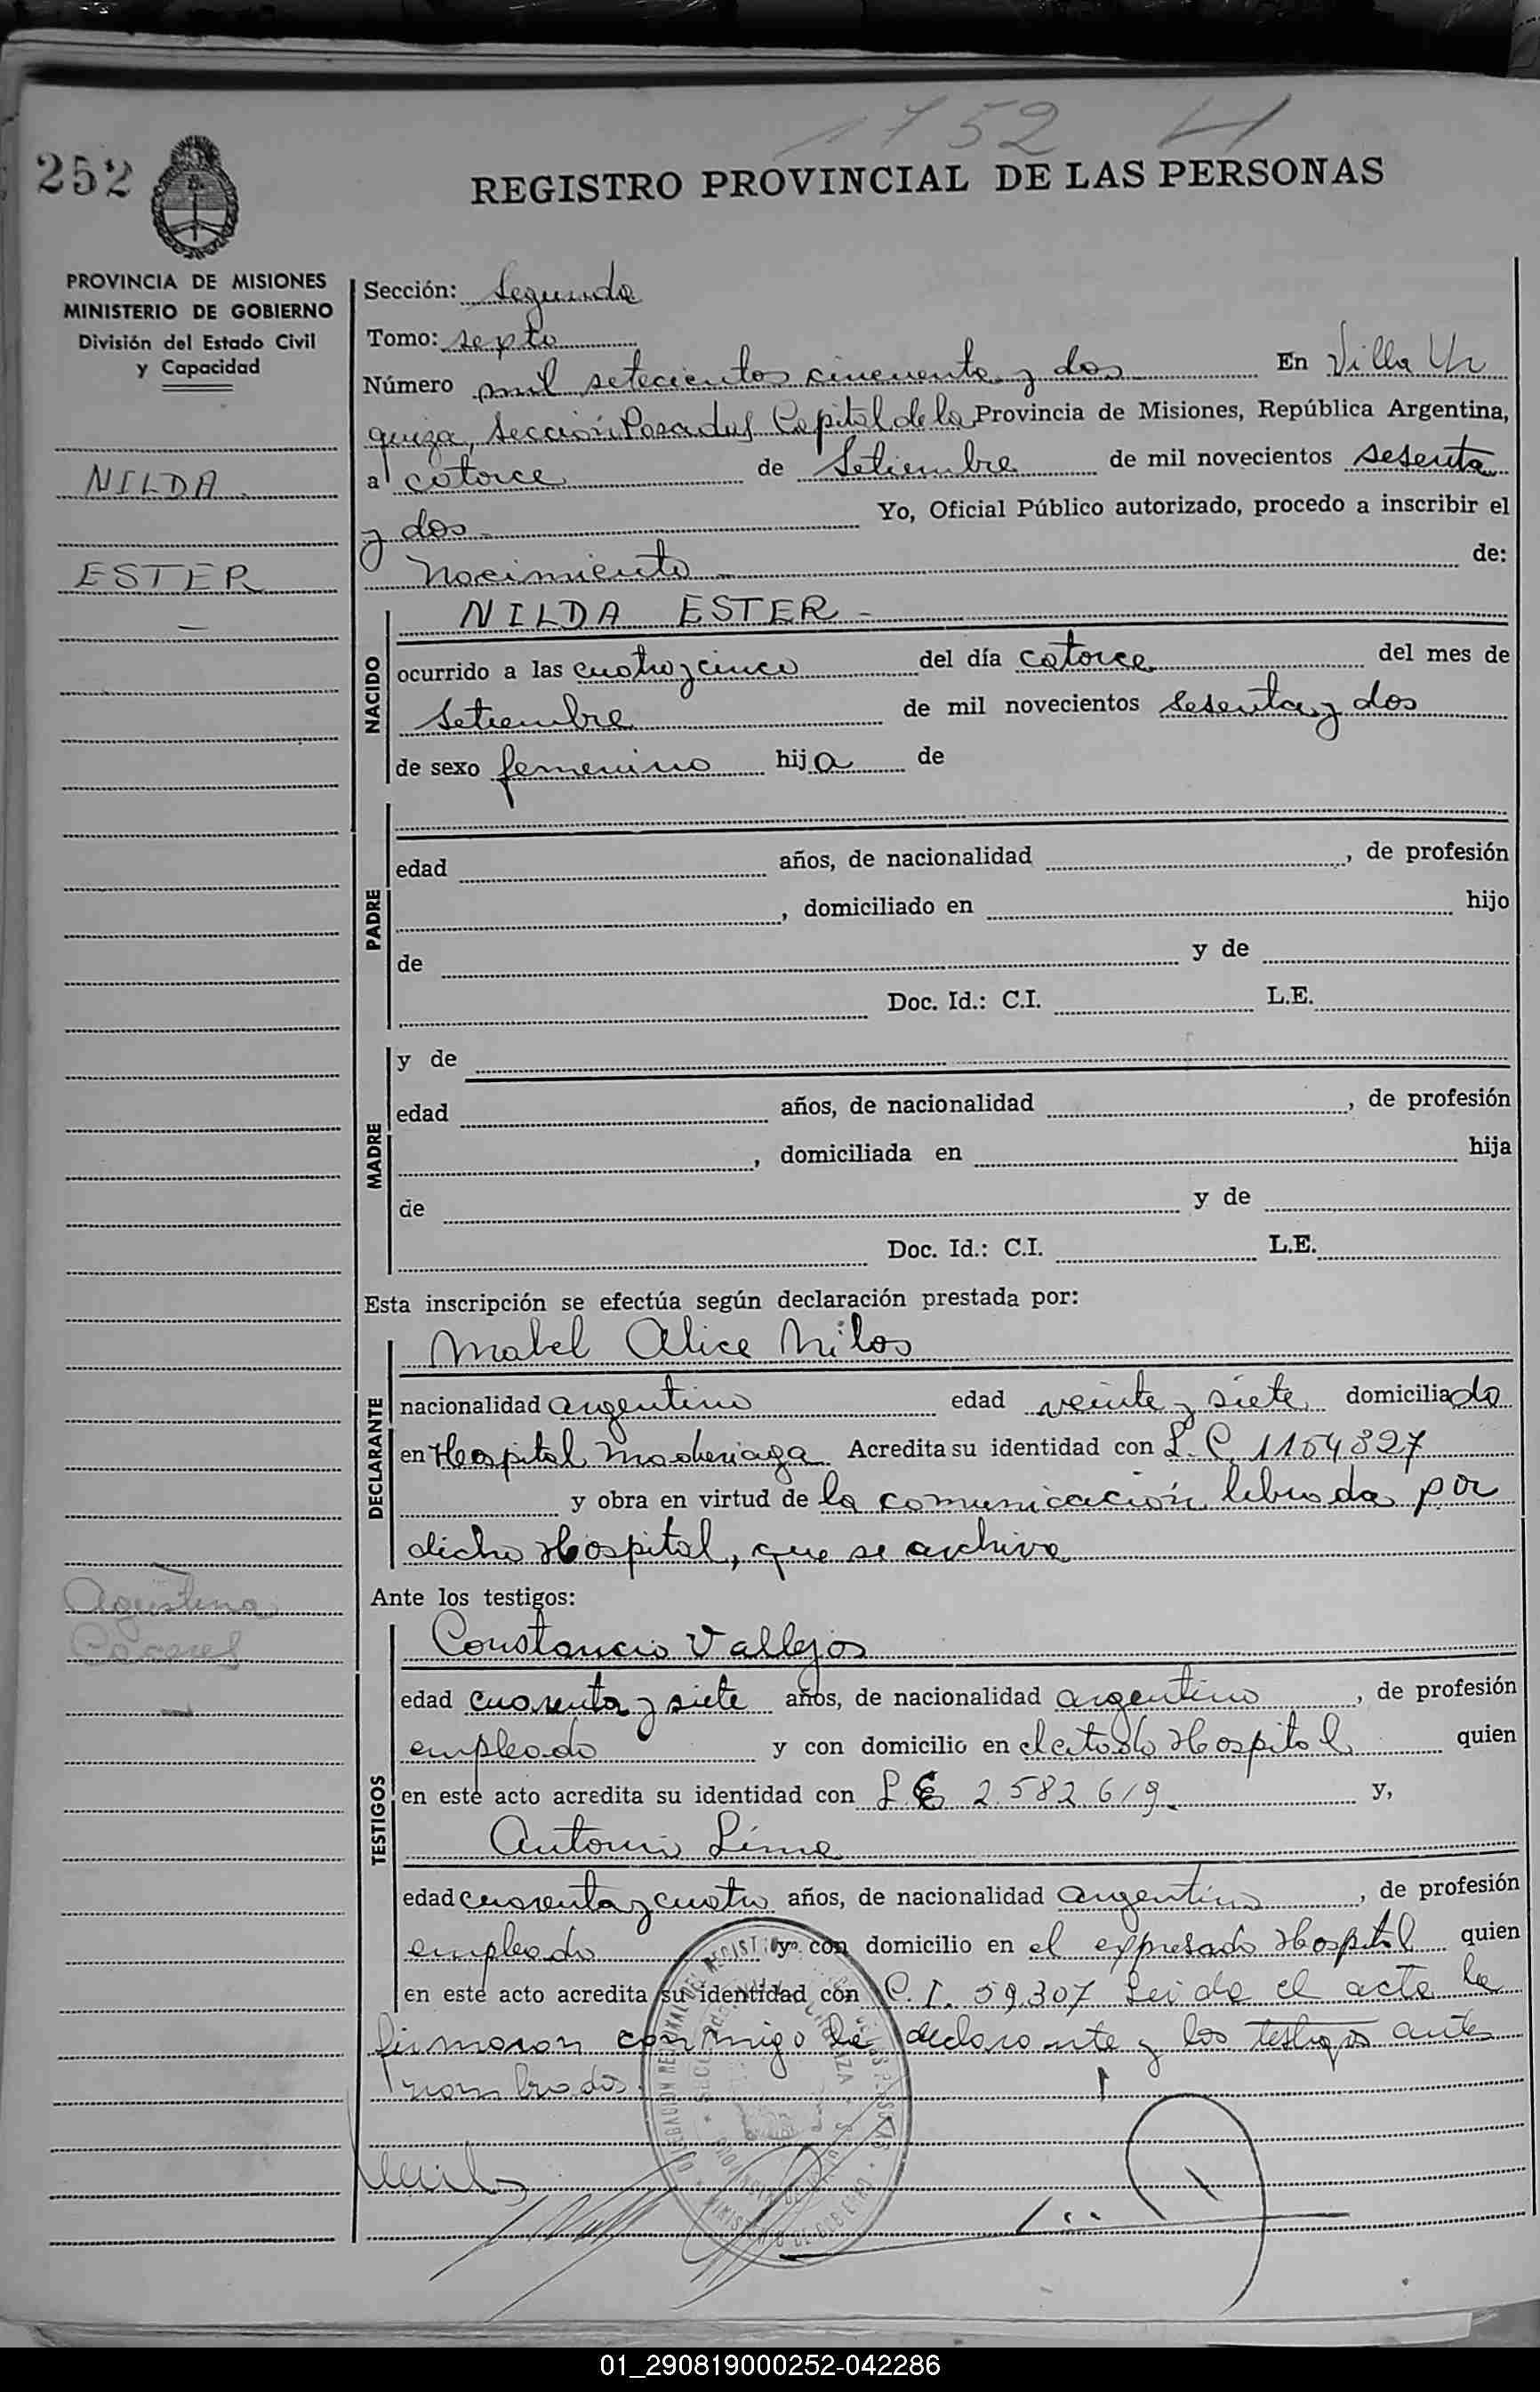 1752
252
REGISTRO PROVINCIAL DE LAS PERSONAS
PROVINCIA DE MISIONES
MINISTERIO DE GOBIERNO
División del Estado Civil
y Capacidad
NILDA
ESTER
Agustina
Caceres
Sección: Segunda
Tomo: sexto
Número mil setecientos cincuenta y dos En Villa Ur
quiza, Sección Posadas Capital de la Provincia de Misiones, República Argentina,
a catorce de Setiembre de mil novecientos sesenta
y dos Yo, Oficial Público autorizado, procedo a inscribir el
Nacimiento de:
NACIDO
NILDA ESTER
ocurrido a las cuatro y cinco del día catorce del mes de
Setiembre de mil novecientos sesenta y dos
de sexo femenino hija de
PADRE
edad años, de nacionalidad , de profesión
, domiciliado en hijo
de y de
Doc. Id.: C.I. L.E.
MADRE
y de
edad años, de nacionalidad , de profesión
, domiciliada en hija
de y de
Doc. Id.: C.I. L.E.
Esta inscripción se efectúa según declaración prestada por:
DECLARANTE
Mabel Alice Milos
nacionalidad argentina edad veinte y siete domiciliado
en Hospital Madariaga Acredita su identidad con L.C. 1154827
y obra en virtud de la comunicación librada por
dicho Hospital, que se archiva
Ante los testigos:
TESTIGOS
Constancio Vallejos
edad cuarenta y siete años, de nacionalidad argentino, de profesión
empleado y con domicilio en el citado Hospital quien
en este acto acredita su identidad con L.E 2.582.619. y,
Antonio Lima
edad cuarenta y cuatro años, de nacionalidad argentino, de profesión
empleado y con domicilio en el expresado Hospital quien
en este acto acredita su identidad con C.I. 59.307 Leida el acta la
firmaron conmigo la declarante y los testigos antes
nombrados.
01_290819000252-042286